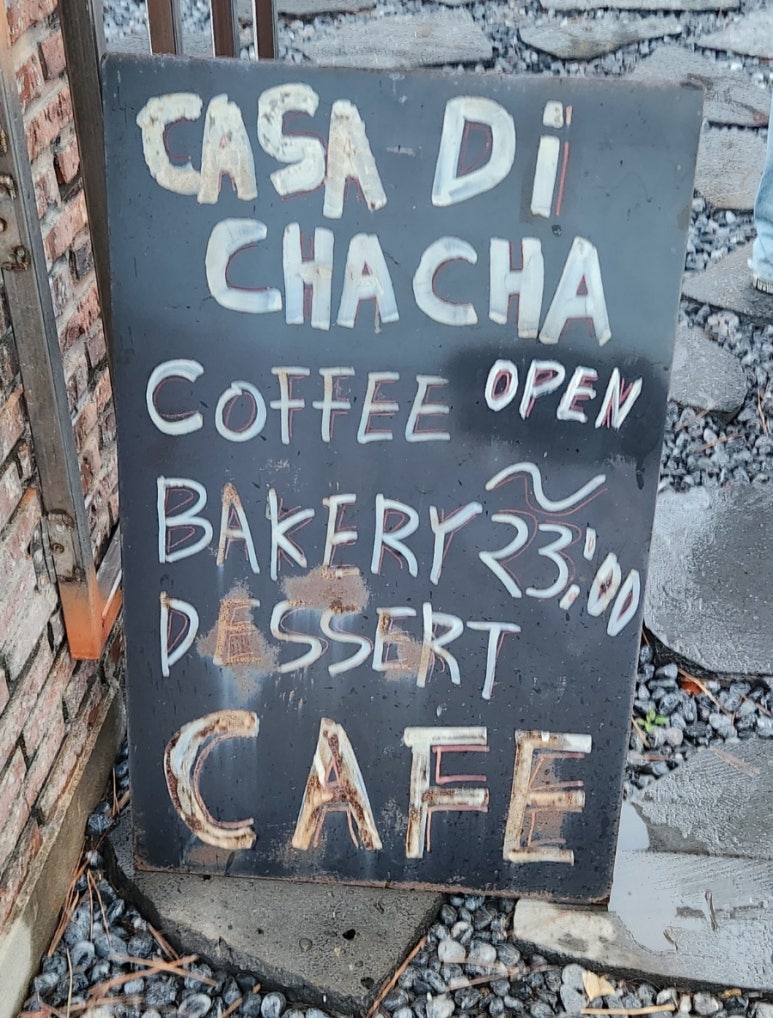 CASA Di
CHACHA
COFFEE OPEN
BAKERY ~23:00
DESSERT
CAFE